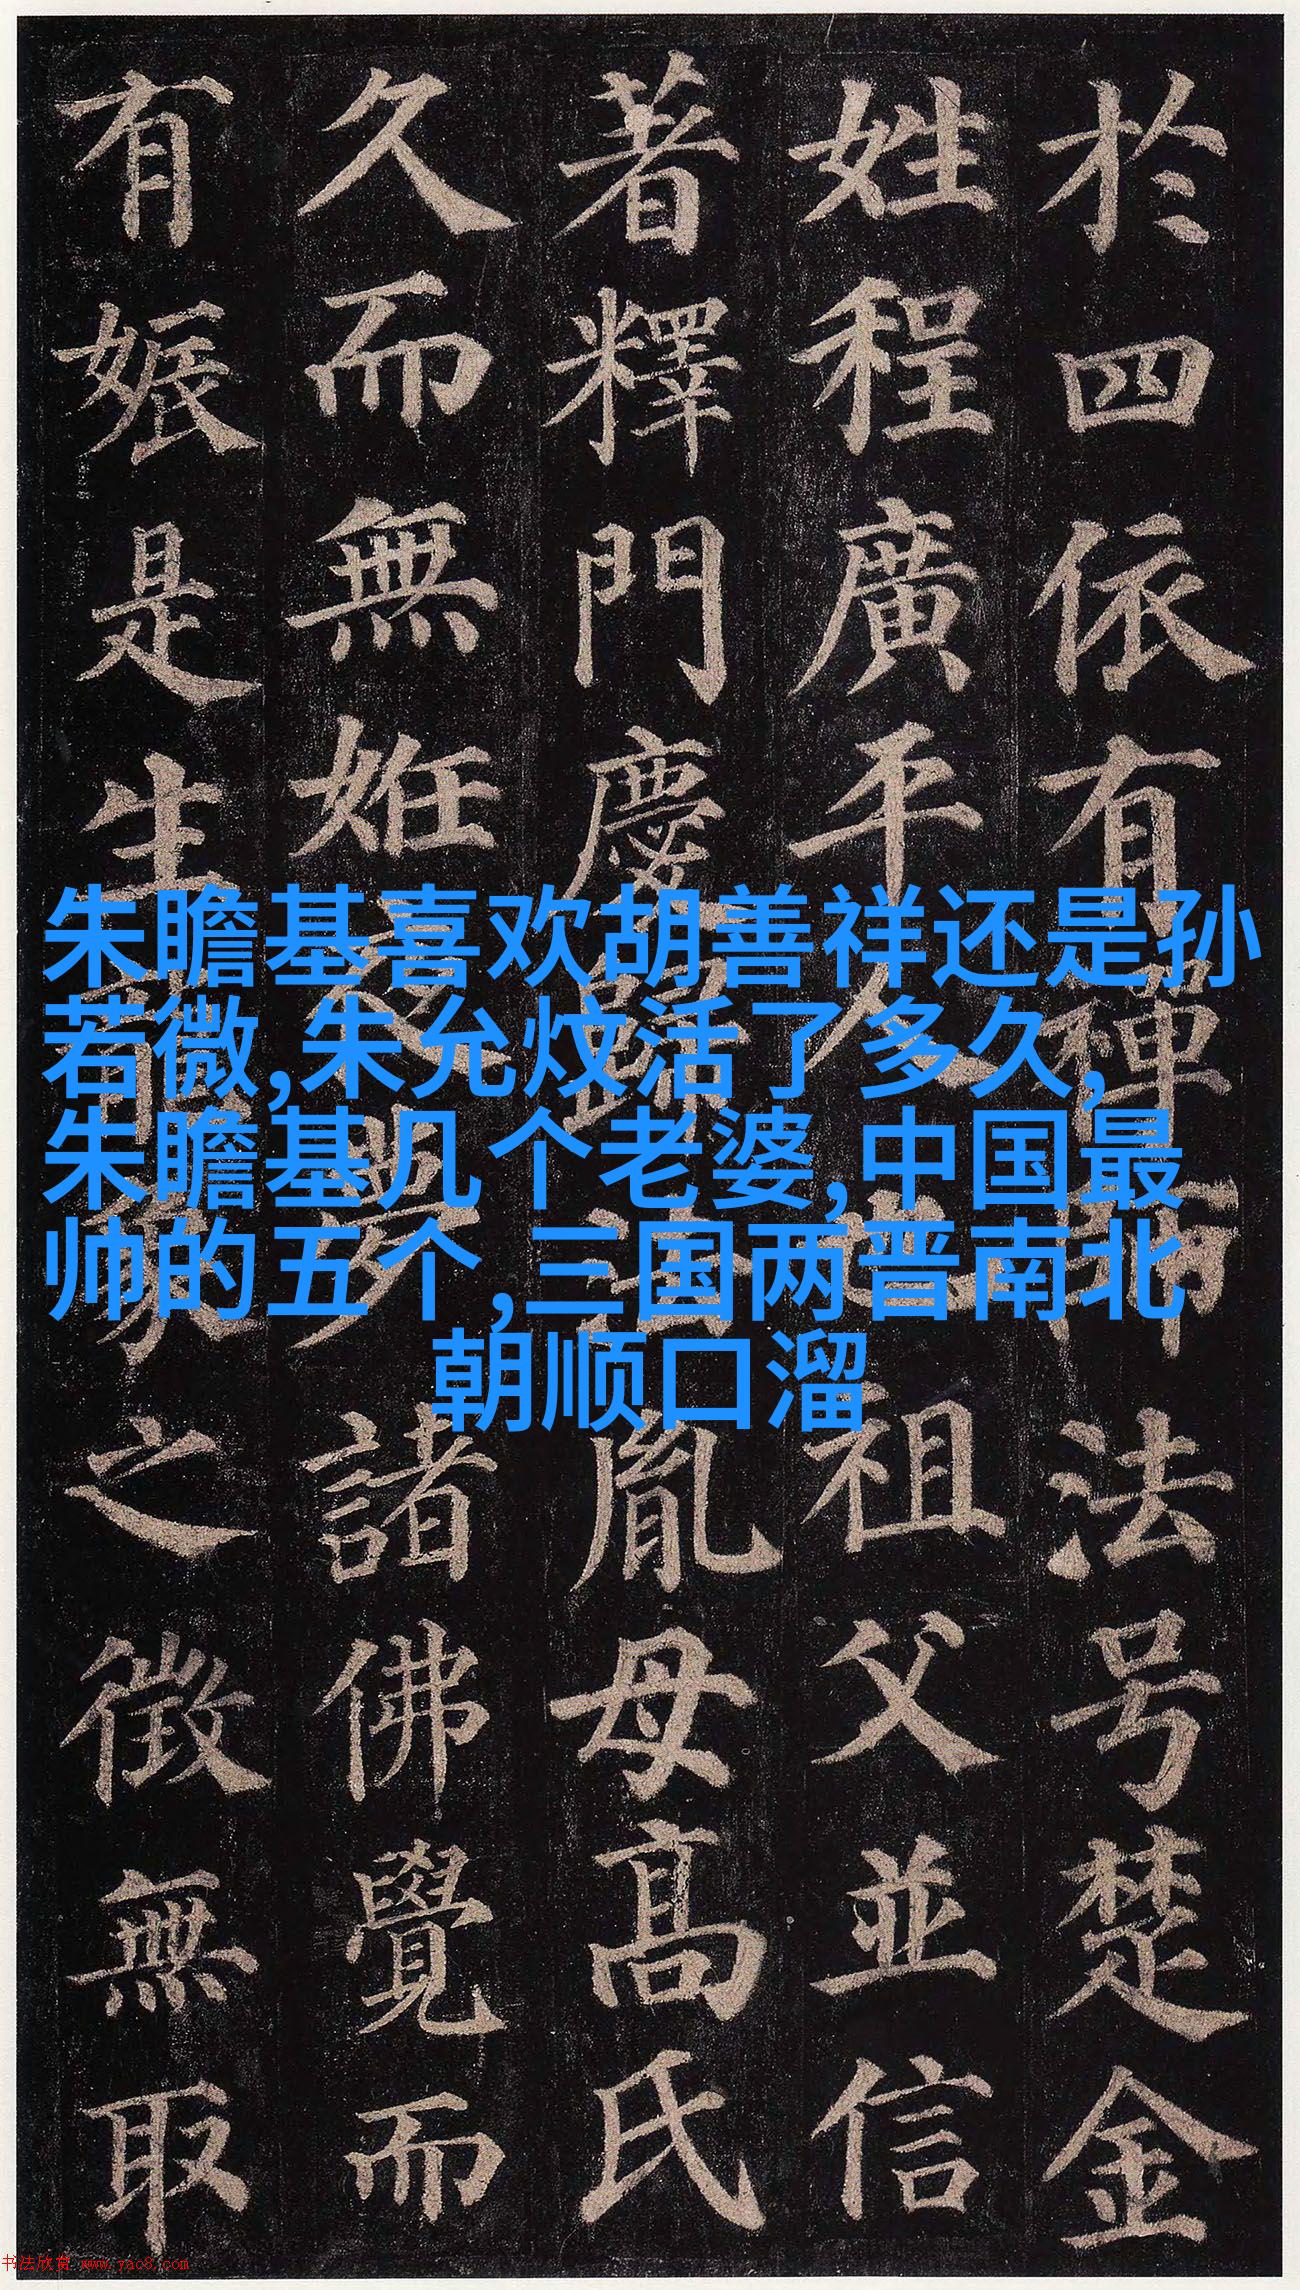 於四依有禪師法号楚金
姓程廣平人也祖父並信
著釋門慶歸法胤母髙氏
久而無姙夜夢諸佛覺而
有娠是生龍象之徵無取
朱瞻基喜欢胡善祥还是孙
若微,朱允炆活了多久,
朱瞻基几个老婆,中国最
帅的五个,三国两晋南北
朝顺口溜
书法欣赏 www.yac8.com